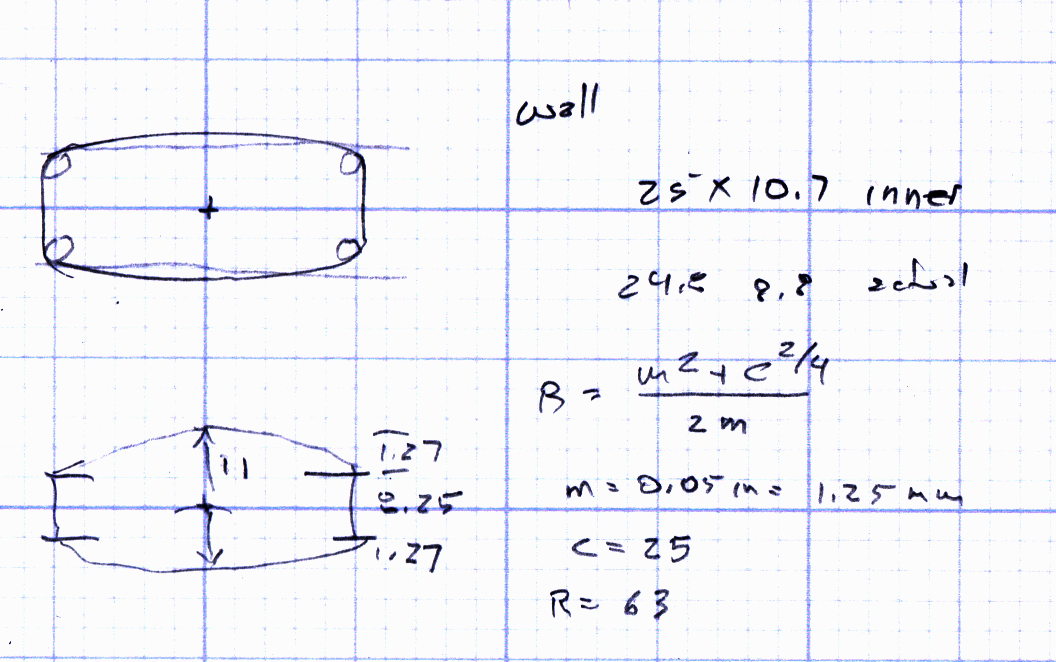 wall
25 × 10.7 inner
24.8 8.8 actual
R = m² + c²/4
2 m
m = 0.05 in = 1.25 mm
c = 25
R = 63
11
1.27
8.25
1.27